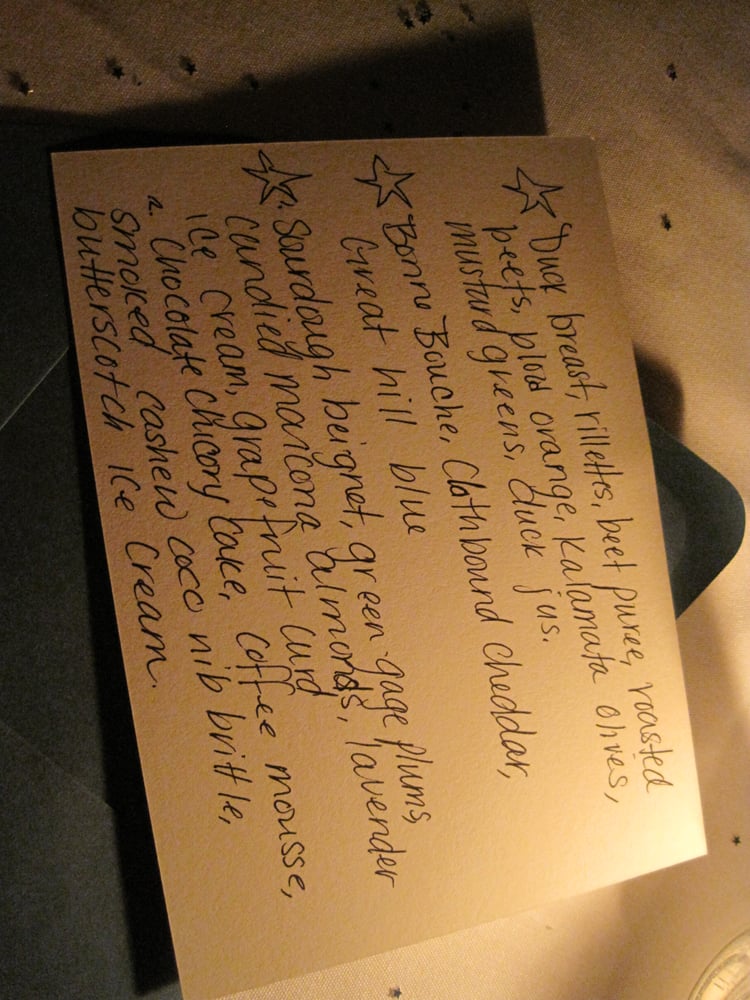 ☆ Duck breast, rillettes, beet puree, roasted
beets, blood orange, kalamata olives,
mustard greens, duck jus.
☆ Bonne Bouche, Clothbound cheddar,
Great hill blue
☆. Sourdough beignet, green gage plums,
candied marcona almonds, lavender
ice cream, grapefruit curd
2. Chocolate chicory cake, coffee mousse,
smoked cashew coco nib brittle,
butterscotch ice cream.